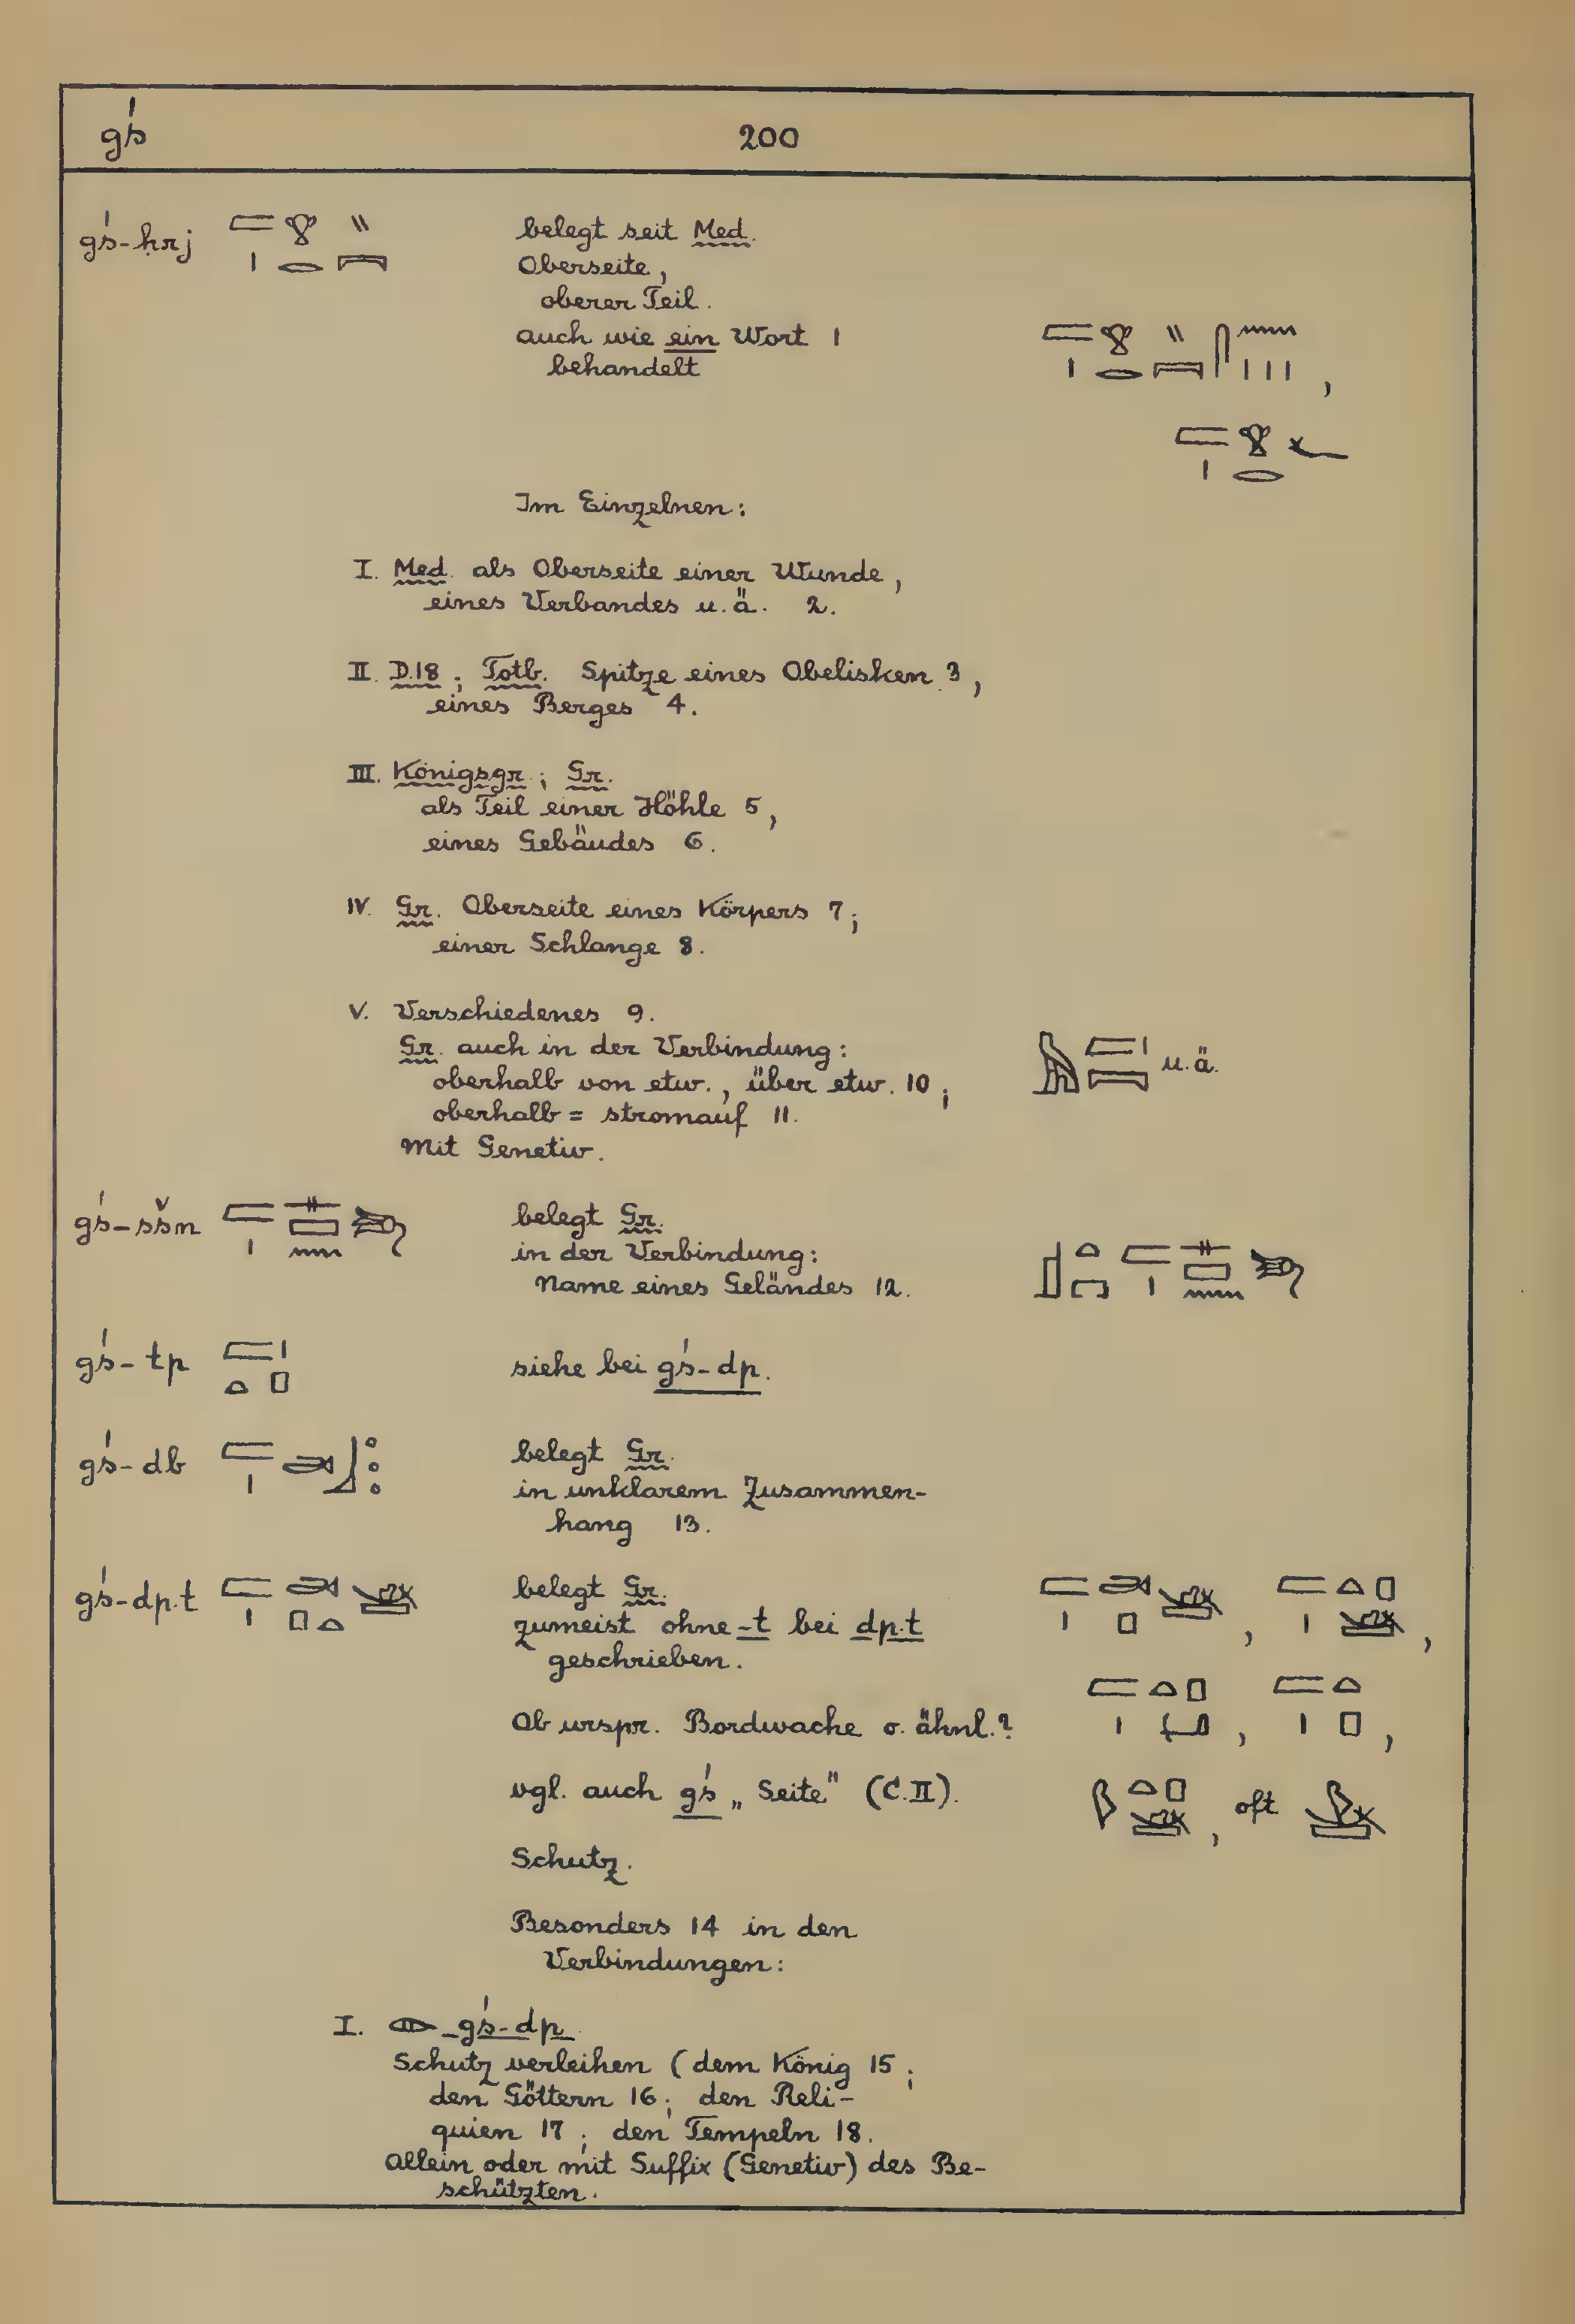 gś 200
gś-ḥrj belegt seit Med.
Oberseite,
oberer Teil.
auch wie ein Wort 1
behandelt
Im Einzelnen:
I. Med. als Oberseite einer Wunde,
eines Verbandes u. ä. 2.
II. D.18; Totb. Spitze eines Obelisken 3,
eines Berges 4.
III. Königsgr.; Gr.
als Teil einer Höhle 5,
eines Gebäudes 6.
IV. Gr. Oberseite eines Körpers 7;
einer Schlange 8.
V. Verschiedenes 9.
Gr. auch in der Verbindung: u. ä.
oberhalb von etw., über etw. 10;
oberhalb = stromauf 11.
Mit Genetiv.
gś-sšn belegt Gr.
in der Verbindung:
Name eines Geländes 12.
gś-tp siehe bei gś-dp.
gś-db belegt Gr.
in unklarem Zusammen-
hang 13.
gś-dp.t belegt Gr.
zumeist ohne -t bei dp.t
geschrieben.
Ob urspr. Bordwache o. ähnl.?
vgl. auch gś „Seite" (C.II). oft
Schutz.
Besonders 14 in den
Verbindungen:
I. gś-dp
Schutz verleihen (dem König 15;
den Göttern 16; den Reli-
quien 17; den Tempeln 18.
Allein oder mit Suffix (Genetiv) des Be-
schützten.